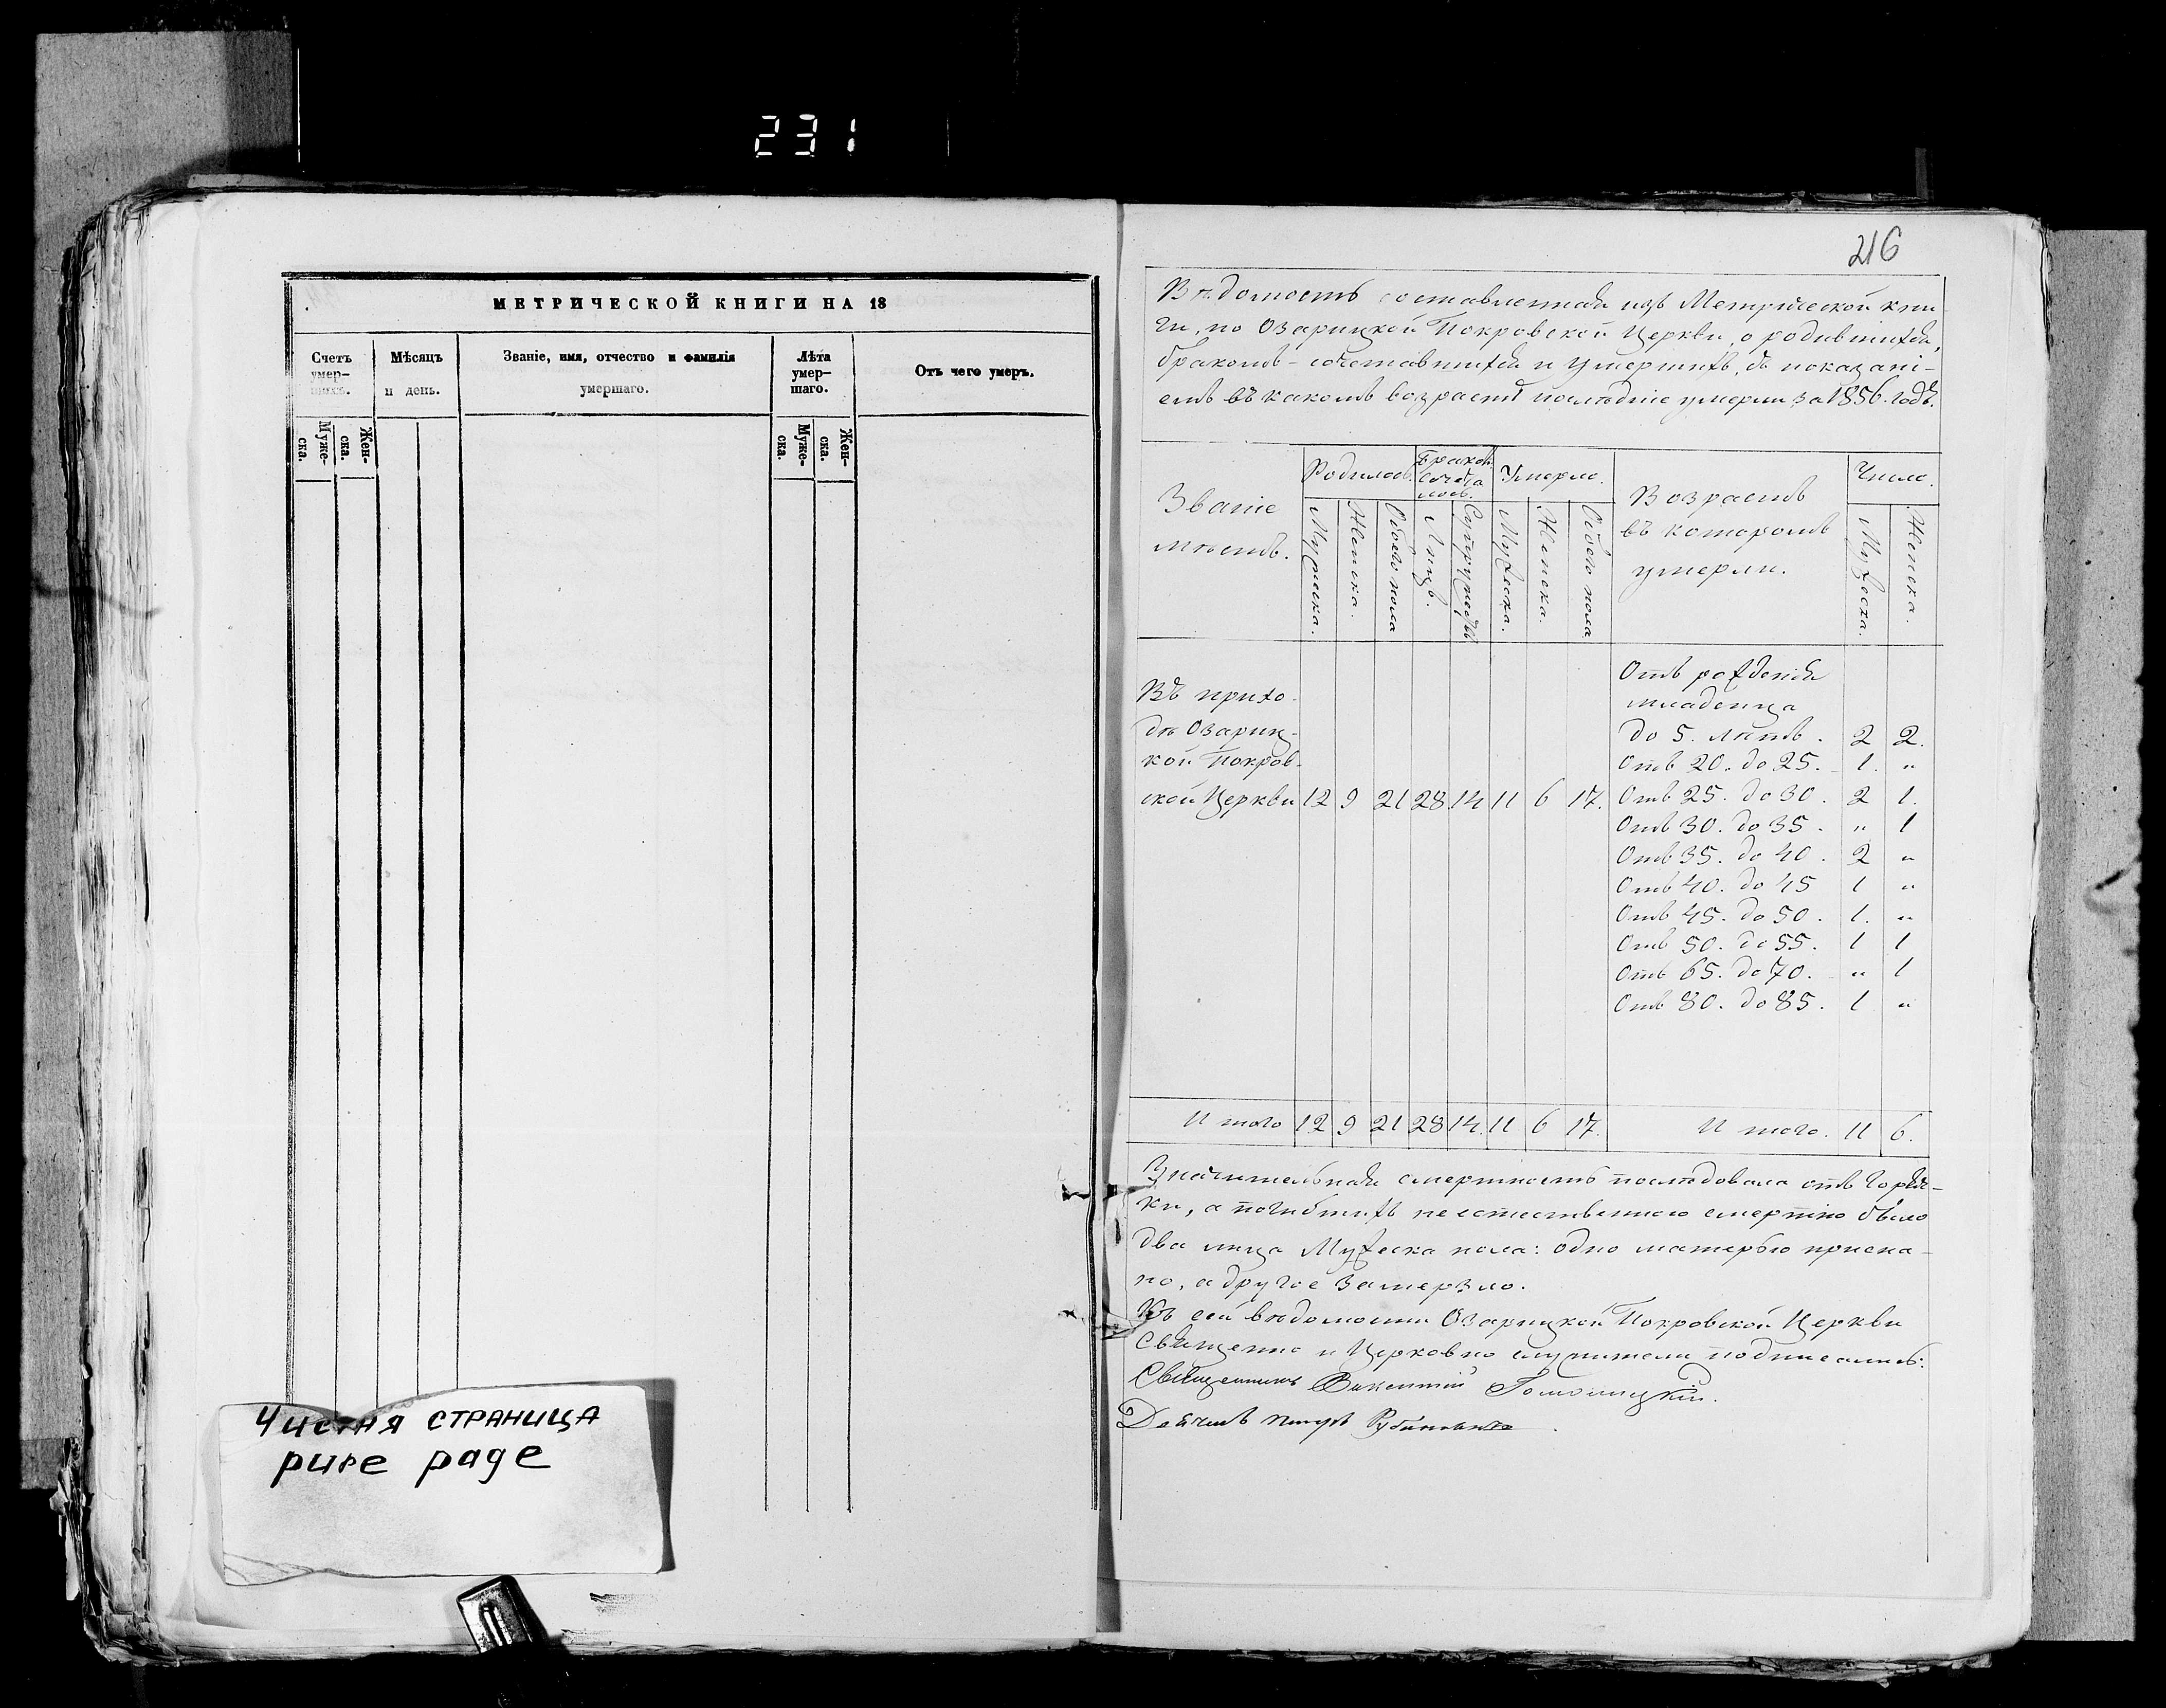 231
МЕТРИЧЕСКОЙ КНИГИ НА 18
Счетъ умер-шихъ.
Мѣсяцъ и день.
Званіе, имя, отчество и фамилія умершаго.
Лѣта умер-шаго.
Отъ чего умеръ.
Муже-ска.
Жен-ска.
Муже-ска.
Жен-ска.
Чистая страница
pure page
216
Вѣдомость составленная изъ Метрической кни
ги, по Озарицкой Покровской Церкви, о родившихся,
бракомъ-сочетавшихся и умершихъ, съ показані-
емъ въ какомъ возрастѣ послѣдніе умерли за 1856. годъ.
Званіе мѣстъ.
Родилось.
Браком. сочета лось.
Умерло.
Возрастъ въ которомъ умерли.
Число.
Мужеска.
Женска.
Обоего пола
Лицъ.
Супружествъ
Мужеска.
Женска.
Обоего пола
Мужеска.
Женска.
Въ прихо-
дѣ Озариц-
кой Покров-
ской Церкви 12 9 21 28 14 11 6 17.
Отъ рожденія
младенца
до 5. лѣтъ. 2 2.
Отъ 20. до 25. 1. "
Отъ 25. до 30. 2 1.
Отъ 30. до 35. " 1
Отъ 35. до 40. 2 "
Отъ 40. до 45 1 "
Отъ 45. до 50. 1. "
Отъ 50. до 55. 1 1
Отъ 65. до 70. " 1
Отъ 80. до 85. 1 "
И того 12 9 21 28 14. 11 6 17. И того. 11 6.
Значительная смертность послѣдовала отъ горяч-
ки, а погибшихъ неестественною смертію было
два лица Мужеска пола: одно матерью приспа-
но, а другое замерзло.
Къ сей вѣдомости Озарицкой Покровской Церкви
Священно и Церковно служители подписались:
Священникъ Викентій
Дьячекъ Петръ